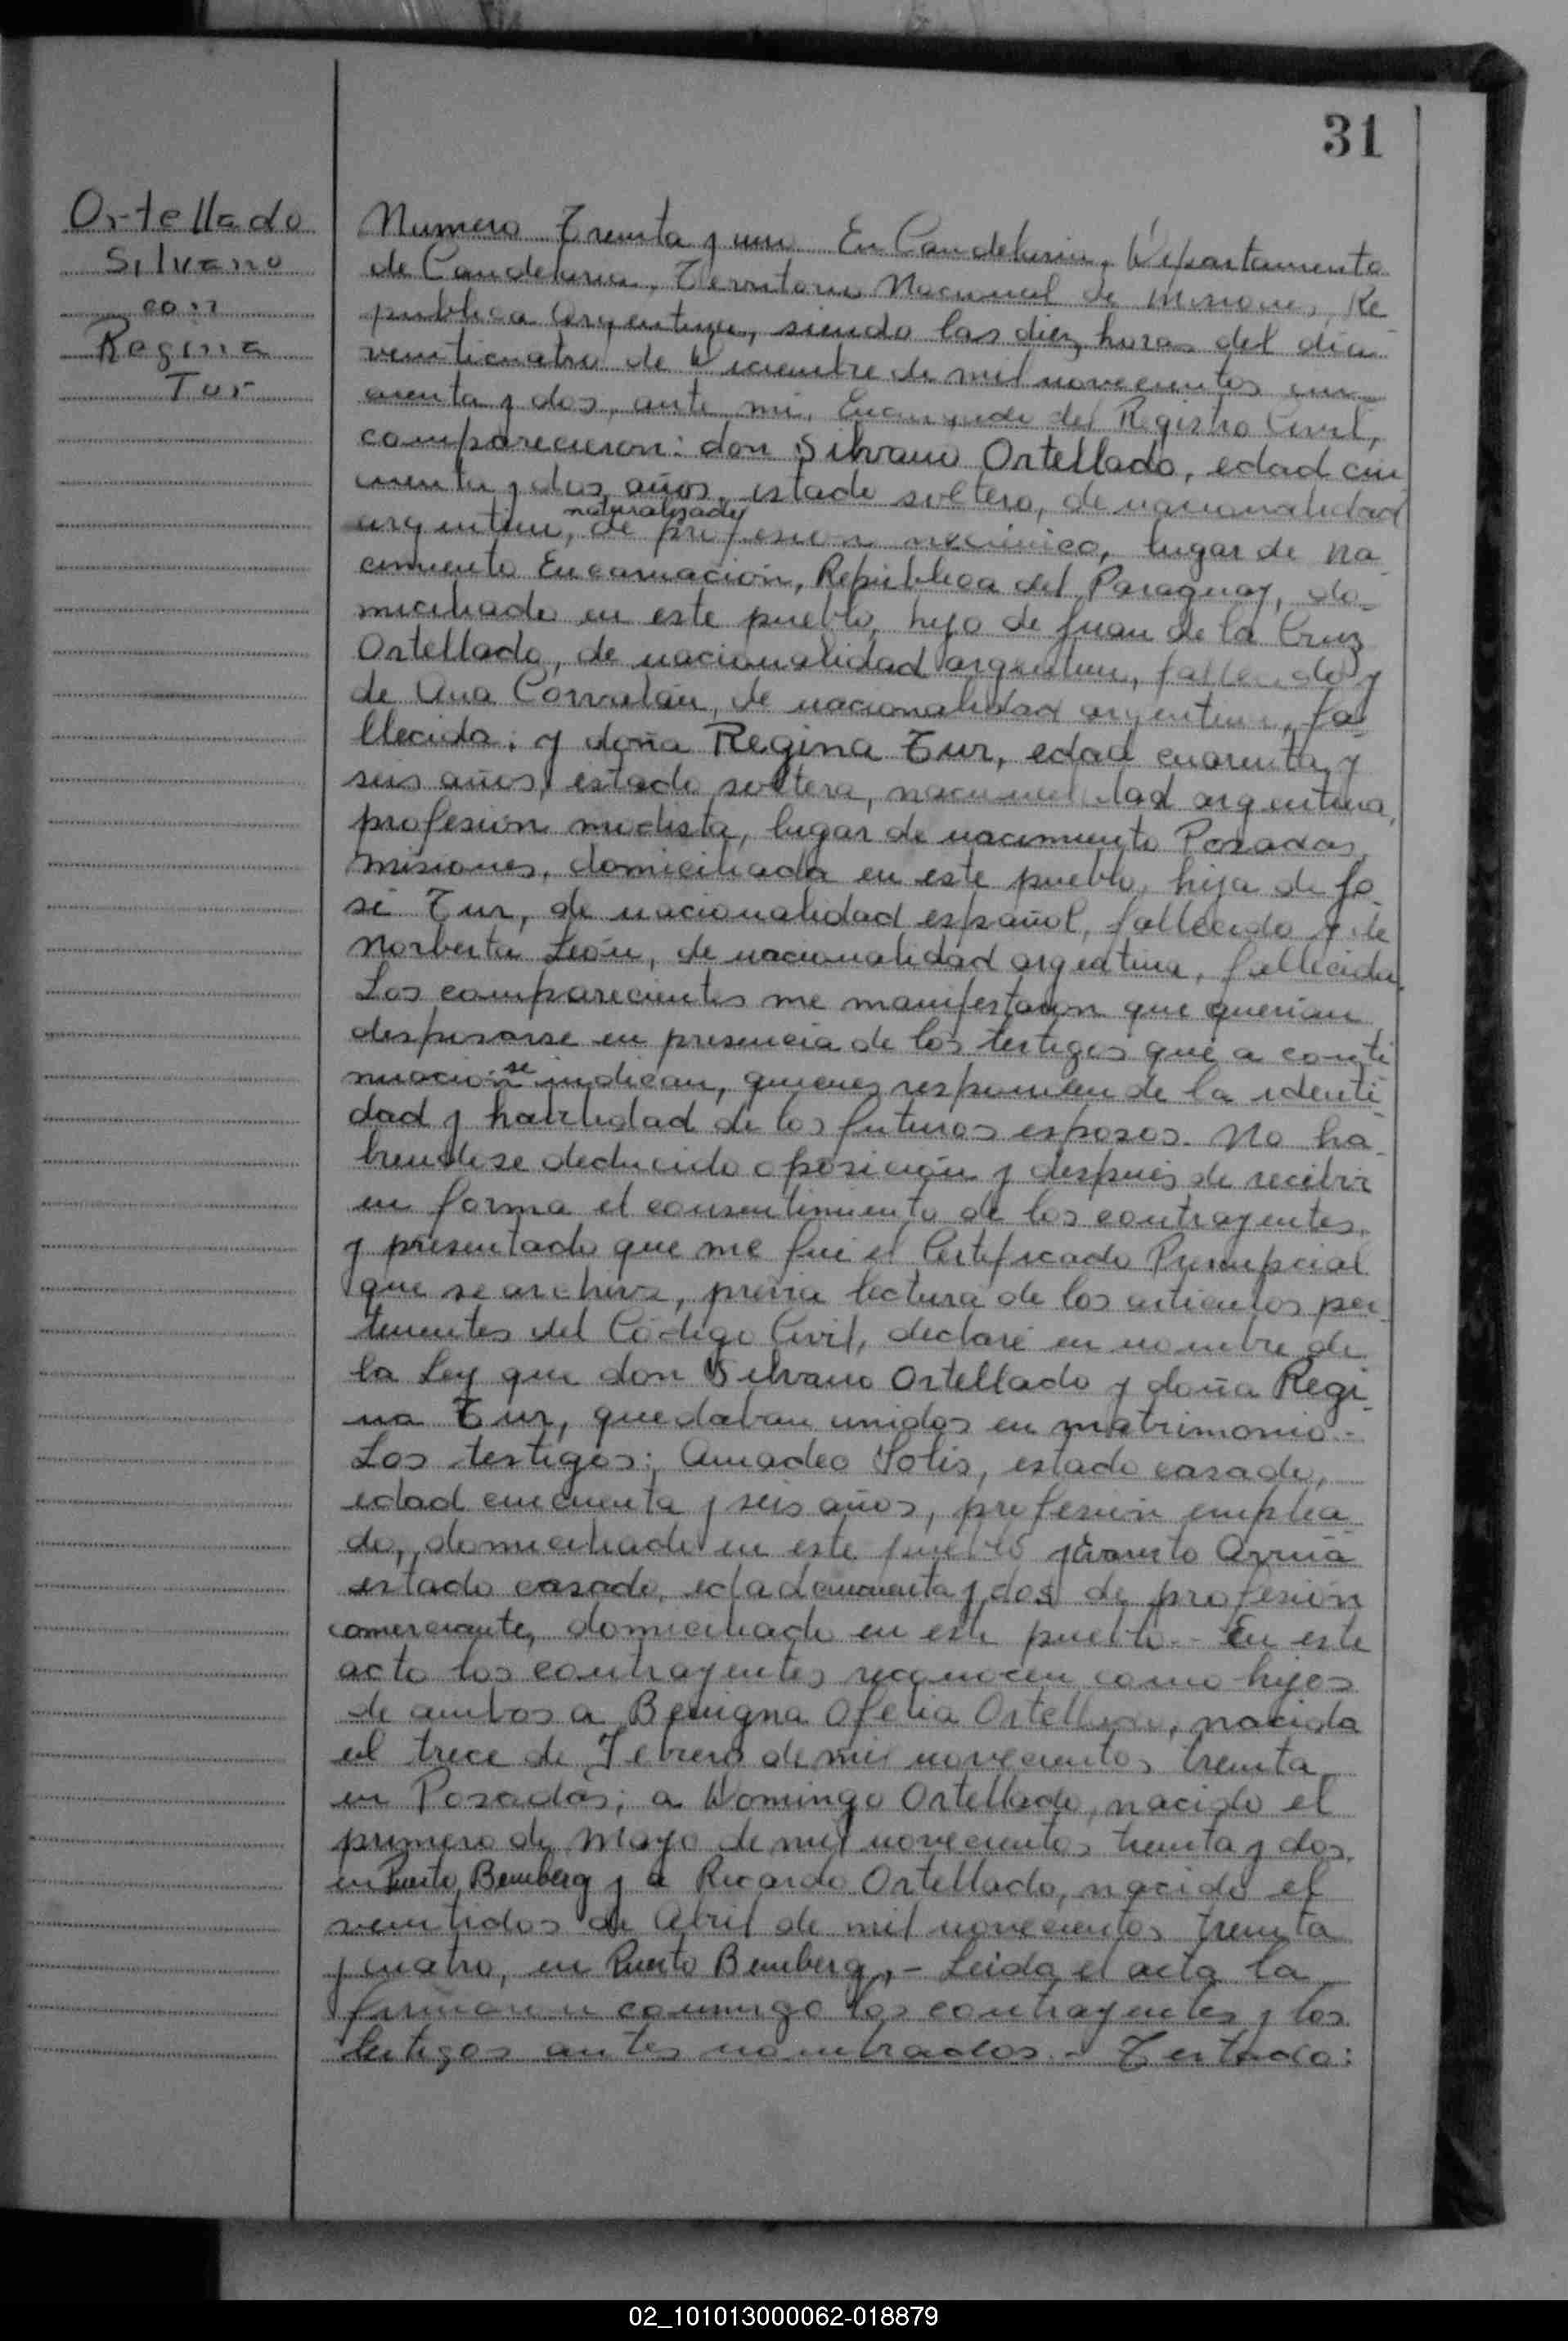 31
Ortellado
Silvano
con
Regina
Tur
Numero Treinta y uno En Candelaria, Departamento
de Candelaria, Territorio Nacional de Misiones, Re-
publica Argentina, siendo las diez horas del dia
veinticuatro de Diciembre de mil novecientos cin-
cuenta y dos, ante mi, Encargado del Registro Civil,
comparecieron: don Silvano Ortellado, edad cin
cuenta y dos años, estado soltero, de nacionalidad
naturalizado
argentino, de profesion mecánico, lugar de na-
cimiento Encarnación, República del Paraguay, do-
miciliado en este pueblo, hijo de Juan de la Cruz
Ortellado, de nacionalidad argentino, fallecido y
de Ana Corvalán, de nacionalidad argentina, fa-
llecida; y doña Regina Tur, edad cuarenta y
seis años, estado soltera, nacionalidad argentina,
profesión modista, lugar de nacimiento Posadas,
Misiones, domiciliada en este pueblo, hija de Jo-
sé Tur, de nacionalidad español, fallecido y de
Norberta León, de nacionalidad argentina, fallecida.
Los comparecientes me manifestaron que querían
desposarse en presencia de los testigos que a conti-
se
nuación indican, quienes responden de la identi-
dad y habilidad de los futuros esposos. No ha-
biendose deducido oposición y después de recibir
en forma el consentimiento de los contrayentes,
y presentado que me fué el Certificado Prenupcial
que se archiva, previa lectura de los articulos per-
tinentes del Código Civil, declaré en nombre de
la Ley que don Silvano Ortellado y doña Regi-
na Tur, quedaban unidos en matrimonio.-
Los testigos: Amadeo Solis, estado casado,
edad cincuenta y seis años, profesión emplea-
do, domiciliado en este pueblo y Evaristo Arrúa
estado casado, edad cincuenta y dos de profesión
comerciante, domiciliado en este pueblo.- En este
acto los contrayentes reconocen como hijos
de ambos a Benigna Ofelia Ortellado, nacida
el trece de Febrero de mil novecientos treinta
en Posadas; a Domingo Ortellado, nacido el
primero de Mayo de mil novecientos treinta y dos
en Puerto Bemberg y a Ricardo Ortellado, nacido el
veintidos de Abril de mil novecientos treinta
y cuatro, en Puerto Bemberg,- Leida el acta la
firmaron conmigo los contrayentes y los
testigos antes nombrados.- Testado:
02_101013000062-018879